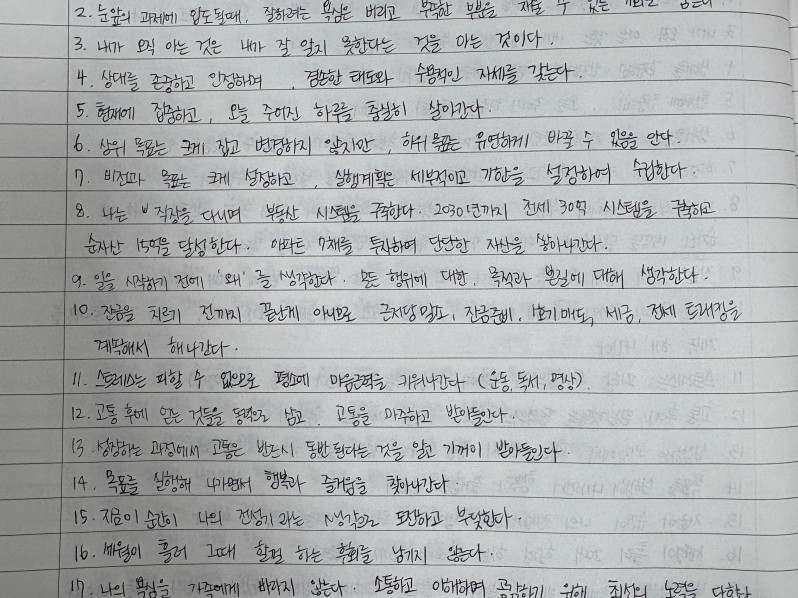 2. 눈앞의 과제에 압도될때, 잘하려는 욕심은 버리고 부족한 부분을 채울 수 있는
3. 내가 오직 아는 것은 내가 잘 알지 못한다는 것을 아는 것이다.
4. 상대를 존중하고 인정하며, 겸손한 태도와 수용적인 자세를 갖는다.
5. 현재에 집중하고, 오늘 주어진 하루를 충실히 살아간다.
6. 상위 목표는 크게 잡고 변경하지 않지만, 하위 목표는 유연하게 바꿀 수 있음을 안다.
7. 비전과 목표는 크게 설정하고, 실행계획은 세부적이고 기한을 설정하여 수립한다.
8. 나는 직장을 다니며 부동산 시스템을 구축한다. 2030년까지 전세 30억 시스템을 구축하고
순자산 15억을 달성한다. 아파트 7채를 투자하며 단단한 자산을 쌓아나간다.
9. 일을 시작하기 전에 '왜'를 생각한다. 모든 행위에 대한 목적과 본질에 대해 생각한다.
10. 잔금을 치르기 전까지 끝난게 아니므로 근저당말소, 잔금준비, 보기매도, 세금, 전세 트래킹을
계속해서 해나간다.
11. 스트레스는 피할 수 없으므로 평소에 마음근력을 키워나간다 (운동, 독서, 명상)
12. 고통 후에 얻는 것들을 동력으로 삼고, 고통을 마주하고 받아들인다.
13. 성장하는 과정에서 고통은 반드시 동반된다는 것을 알고 기꺼이 받아들인다.
14. 목표를 실행해 나가면서 행복과 즐거움을 찾아나간다.
15. 지금이 순간이 나의 전성기라는 생각으로 도전하고 부딪힌다.
16. 세월이 흘러 그때 할껄 하는 후회를 남기지 않는다.
17. 나의 욕심을 가족에게 바라지 않는다. 소통하고 이해하며 공감하기 위해 최선의 노력을 다한다